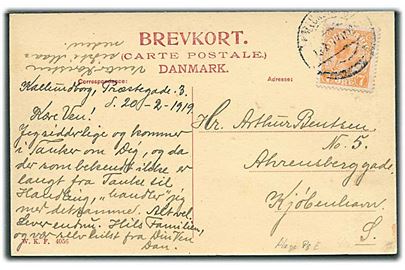 BREVKORT.
(CARTE POSTALE.)
DANMARK.
Correspondance:
Adresse:
Kallundborg, Præstegade 3.
d. 20/2-1919
Kære Ven!
Jeg sidder lige og kommer
i Tanker om Dig, og da
der som bekendt ikke er
langt fra Tanke til
Handling, "handler" jeg
med det samme. Alt vel.
Lever endnu. Hils Familien,
og vær selv hilst fra Din Ven
Dan.
Hr. Arthur Bentsen
No. 5.
Ahrensberggade
Kjøbenhavn
S.
W. K. F. 4056